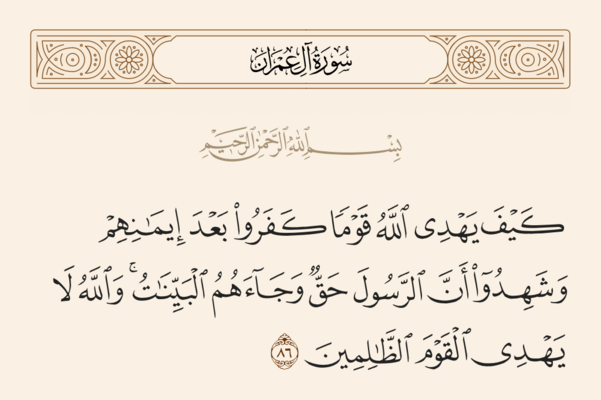 سُورَةُ آلِ عِمْرَانَ
بِسْمِ ٱللَّهِ ٱلرَّحْمَٰنِ ٱلرَّحِيمِ
كَيْفَ يَهْدِى ٱللَّهُ قَوْمًا كَفَرُوا۟ بَعْدَ إِيمَـٰنِهِمْ
وَشَهِدُوٓا۟ أَنَّ ٱلرَّسُولَ حَقٌّ وَجَآءَهُمُ ٱلْبَيِّنَـٰتُ ۚ وَٱللَّهُ لَا
يَهْدِى ٱلْقَوْمَ ٱلظَّـٰلِمِينَ ٨٦